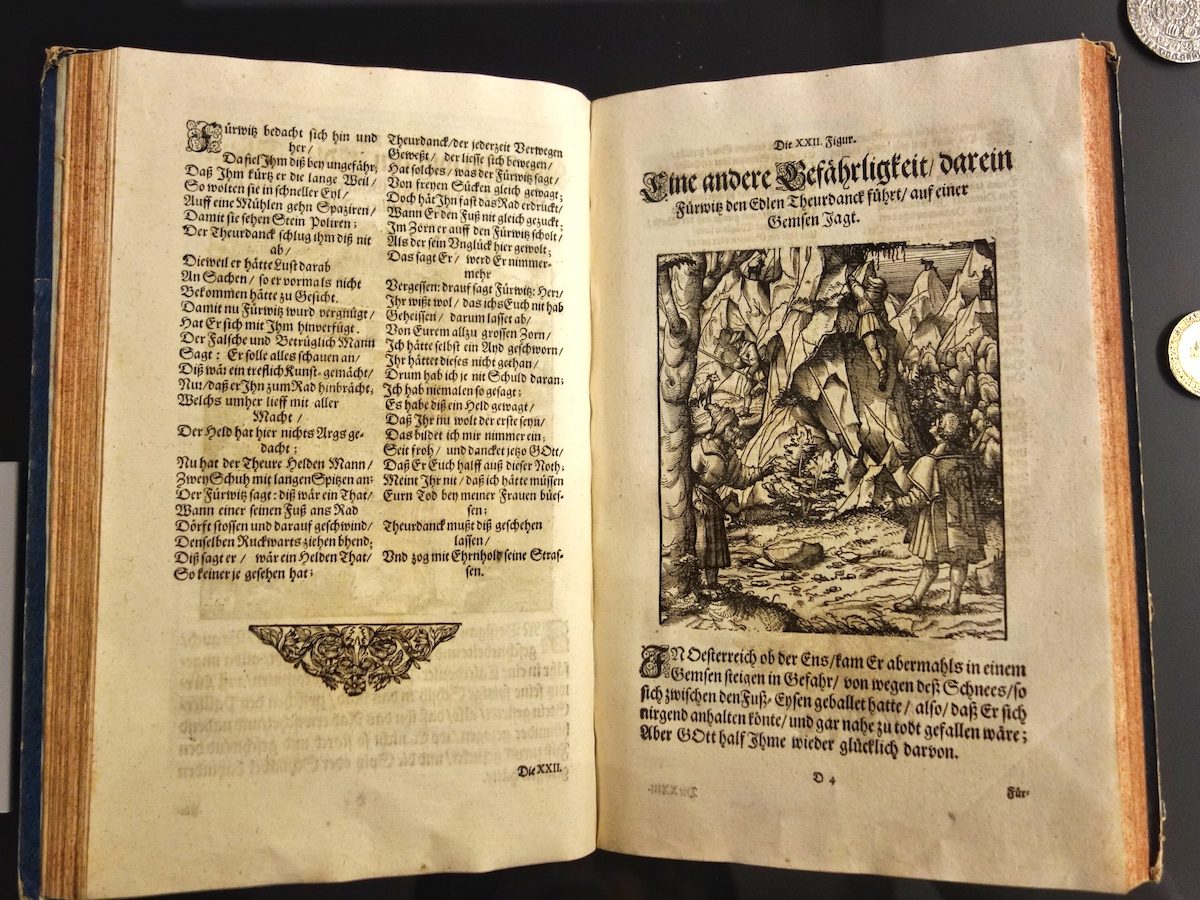 Fürwitz bedacht sich hin und
her/
Da fiel Ihm diß bey ungefähr;
Daß Ihm kürtz er die lange Weil/
So wolten sie in schneller Eyl/
Auff eine Mühlen gehn Spaziren/
Damit sie sehen Stein Poliren;
Der Theurdanck schlug ihm diß nit
ab/
Dieweil er hätte Lust darab
An Sachen/ so er vormals nicht
Bekommen hätte zu Gesicht.
Damit nu Fürwitz wurd vergnügt/
Hat Er sich mit Ihm hinverfügt.
Der Falsche und Betrüglich Mann
Sagt: Er solle alles schauen an/
Diß wär ein treflich Kunst-gemächt/
Nur/ daß er Ihn zum Rad hinbrächt;
Welchs umher lieff mit aller
Macht/
Der Held hat hier nichts Args ge-
dacht;
Nu hat der Theure Helden Mann/
Zwey Schuh mit langen Spitzen an:
Der Fürwitz sagt: diß wär ein That/
Wann einer seinen Fuß ans Rad
Dörft stossen und darauf geschwind/
Denselben Ruckwarts ziehen bhend;
Diß sagt er/ wär ein Helden That/
So keiner je gesehen hat;
Theurdanck/ der jederzeit Verwegen
Geweßt/ der liesse sich bewegen/
Hat solches/ was der Fürwitz sagt/
Von freyen Sücken gleich gewagt;
Doch hät Ihn fast das Rad erdrückt/
Wann Er den Fuß nit gleich gezuckt;
Im Zorn er auff den Fürwitz scholt/
Als der sein Vnglück hier gewolt;
Das sagt Er/ werd Er nimmer-
mehr
Vergessen: drauf sagt Fürwitz: Herr/
Ihr wißt wol/ das ichs Euch nit hab
Geheissen/ darum lasset ab/
Von Eurem allzu grossen Zorn/
Ich hätte selbst ein Ayd geschworn/
Ihr hättet dieses nicht gethan/
Drum hab ich je nit Schuld daran;
Ich hab niemalen so gesagt;
Es habe diß ein Held gewagt/
Daß Ihr nu wolt der erste seyn/
Das bildet ich mir nimmer ein;
Seit froh/ und dancket jetzo GOtt/
Daß Er Euch halff auß dieser Noth:
Meint Ihr nit/ daß ich hätte müssen
Eurn Tod bey meiner Frauen bües-
sen;
Theurdanck mußt diß geschehen
lassen/
Vnd zog mit Ehrnhold seine Stras-
sen.
Die XXII.
Die XXII. Figur.
Eine andere Gefährligkeit/ darein
Fürwitz den Edlen Theurdanck führt/ auf einer
Gemsen Jagt.
IN Oesterreich ob der Ens/ kam Er abermahls in einem
Gemsen steigen in Gefahr/ von wegen deß Schnees/ so
sich zwischen den Fuß-Eysen geballet hatte/ also/ daß Er sich
nirgend anhalten könte/ und gar nahe zu todt gefallen wäre;
Aber GOtt half Ihme wieder glücklich darvon.
D 4
Für-